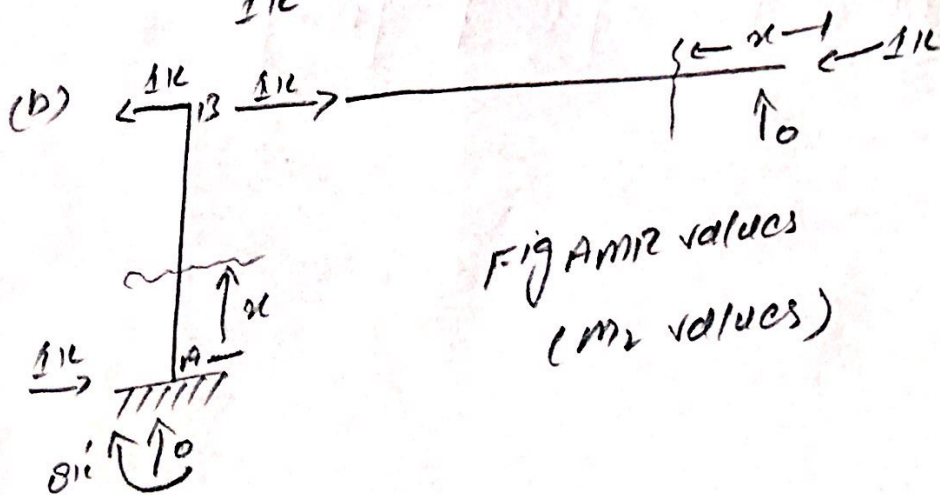 1K
x 1K
(b) 1K B 1K
0
x
Fig AMR values
(M₂ values)
1K A
8K' 0